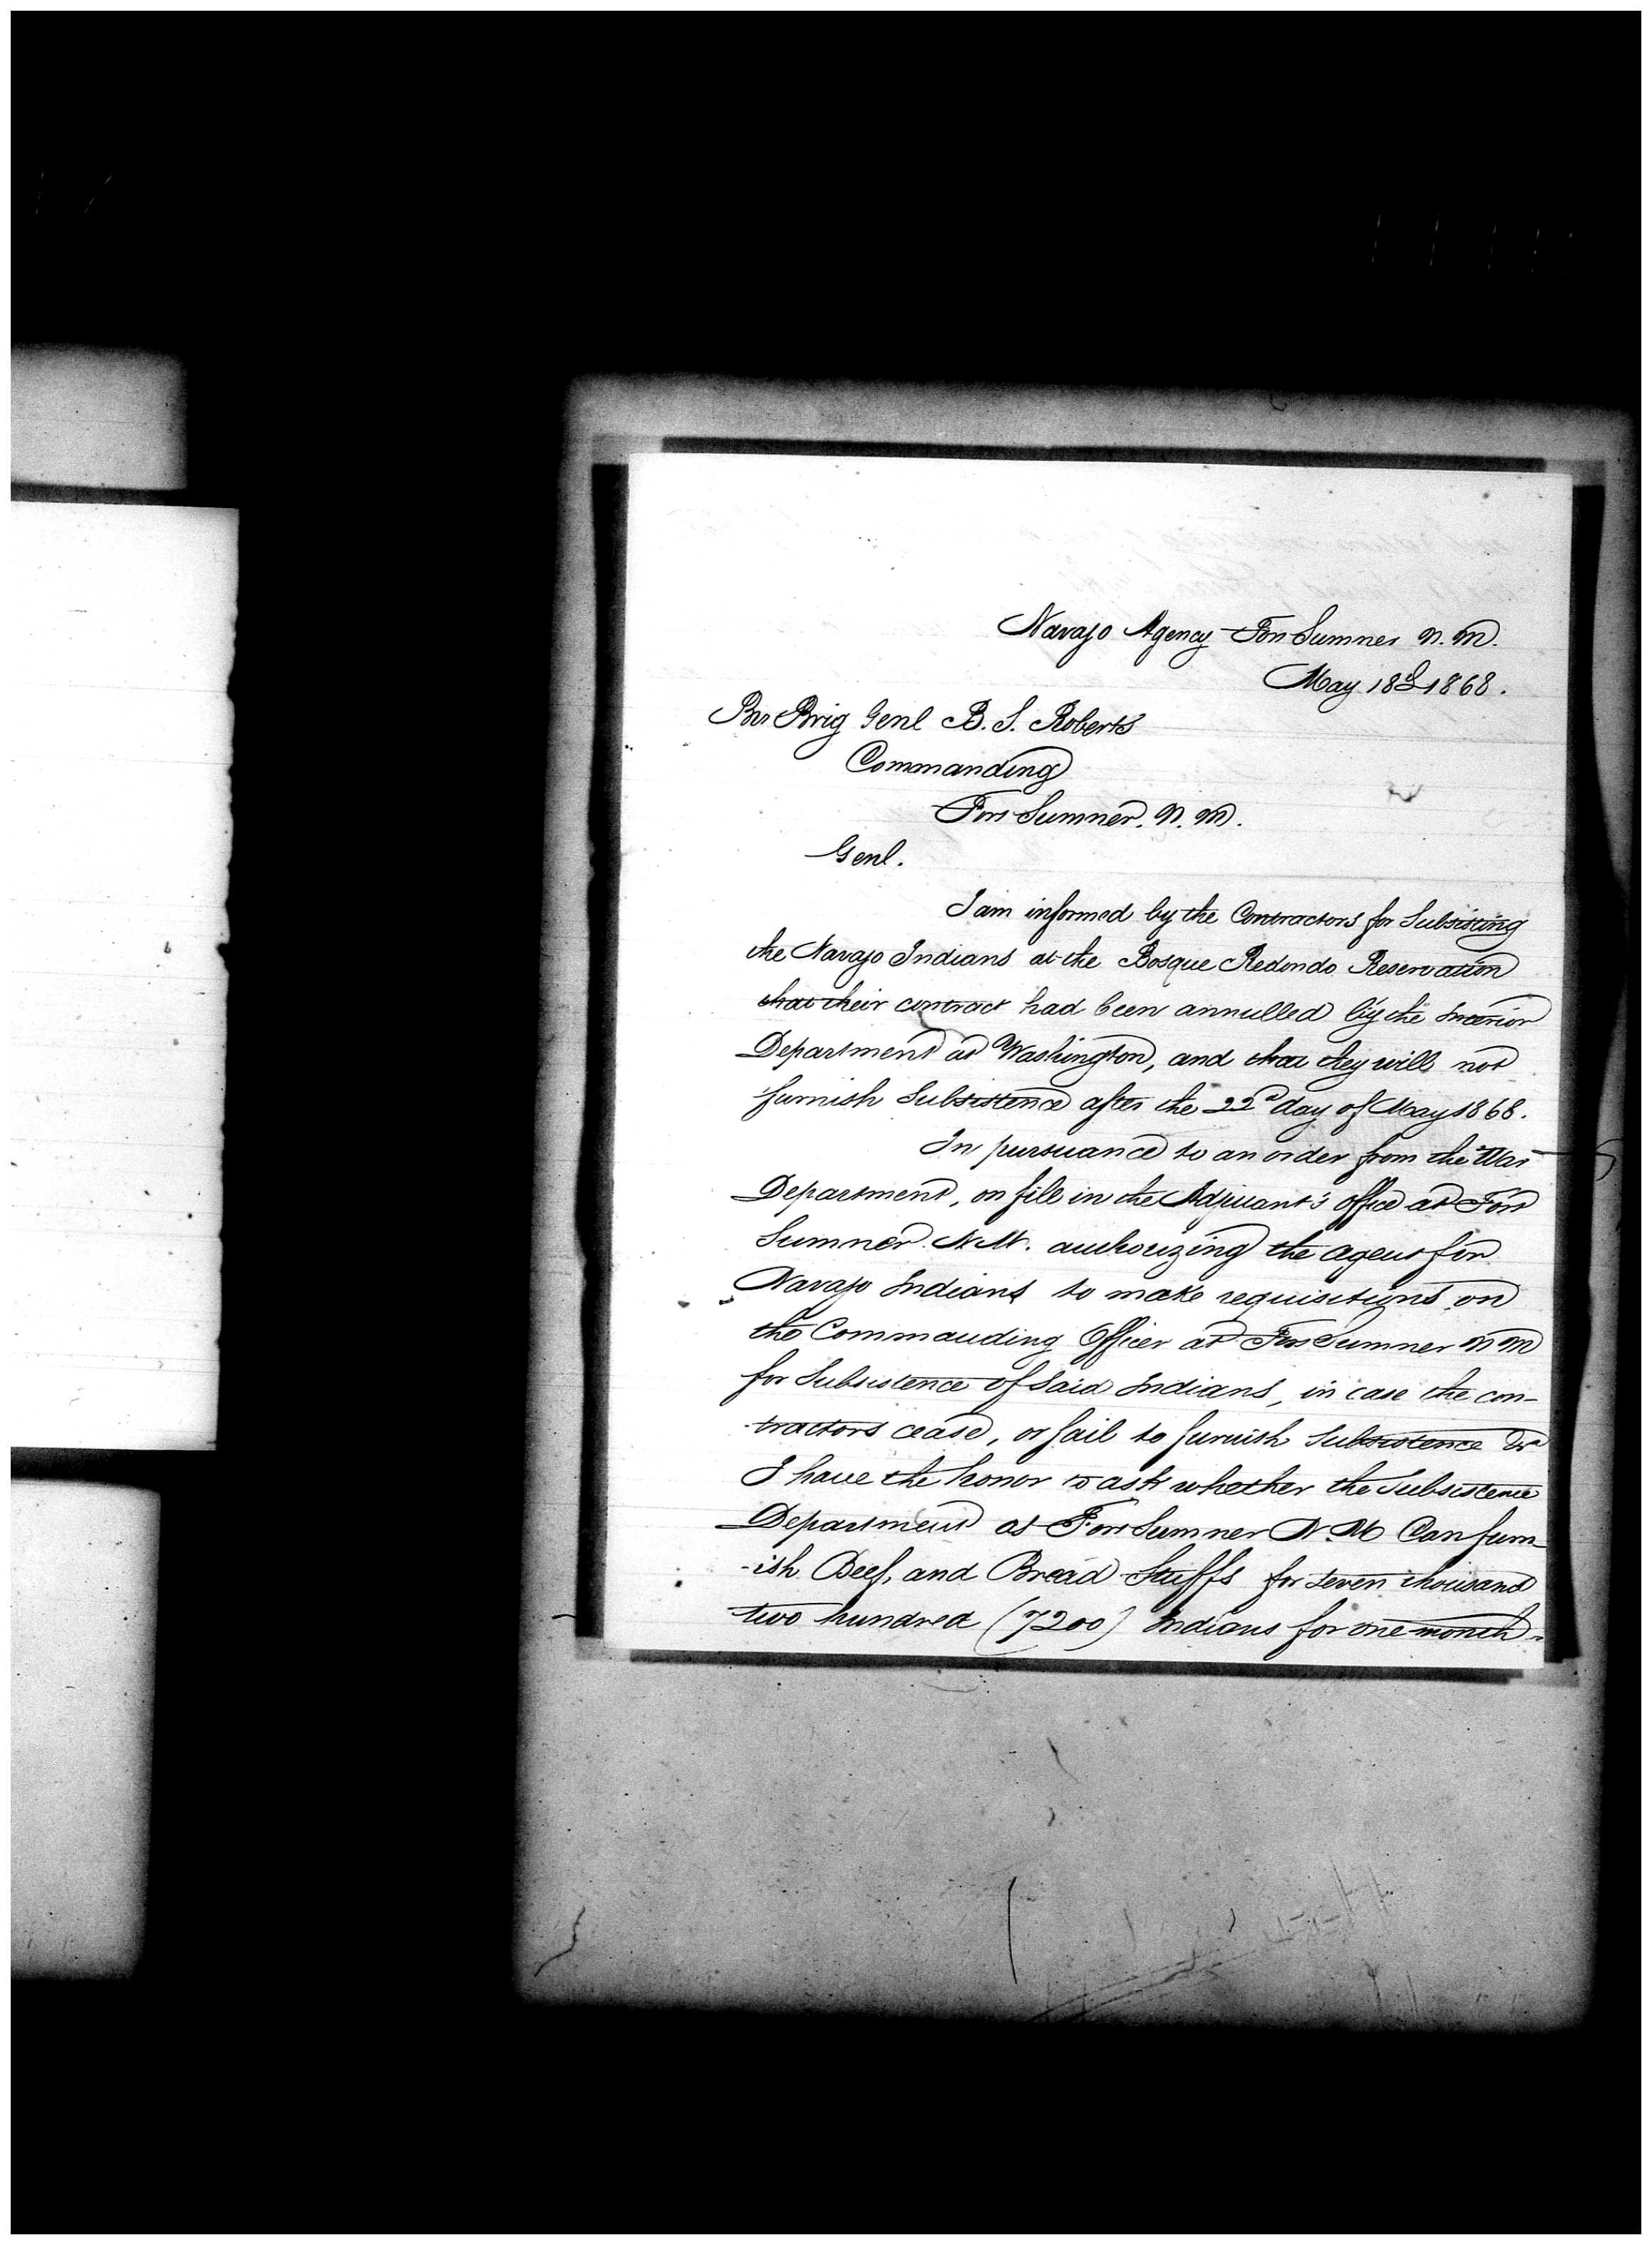 Navajo Agency Fort Sumner N.M.
May 18th 1868.
Bvt Brig Genl B. S. Roberts
Commanding
Fort Sumner. N. M.
Genl.
I am informed by the Contractors for Subsisting
the Navajo Indians at the Bosque Redondo Reservation
that their contract had been annulled by the Interior
Department at Washington, and that they will not
furnish Subsistence after the 22d day of May 1868.
In pursuance to an order from the War
Department, on file in the Adjutant's office at Fort
Sumner N.M. authorizing the agent for
Navajo Indians to make requisitions on
the Commanding Officer at Fort Sumner N M
for Subsistence of Said Indians, in case the con-
-tractors cease, or fail to furnish Subsistence &c
I have the honor to ask whether the Subsistence
Department at Fort Sumner N. M Can furn-
-ish Beef, and Bread Stuffs for seven thousand
two hundred (7200) Indians for one month.